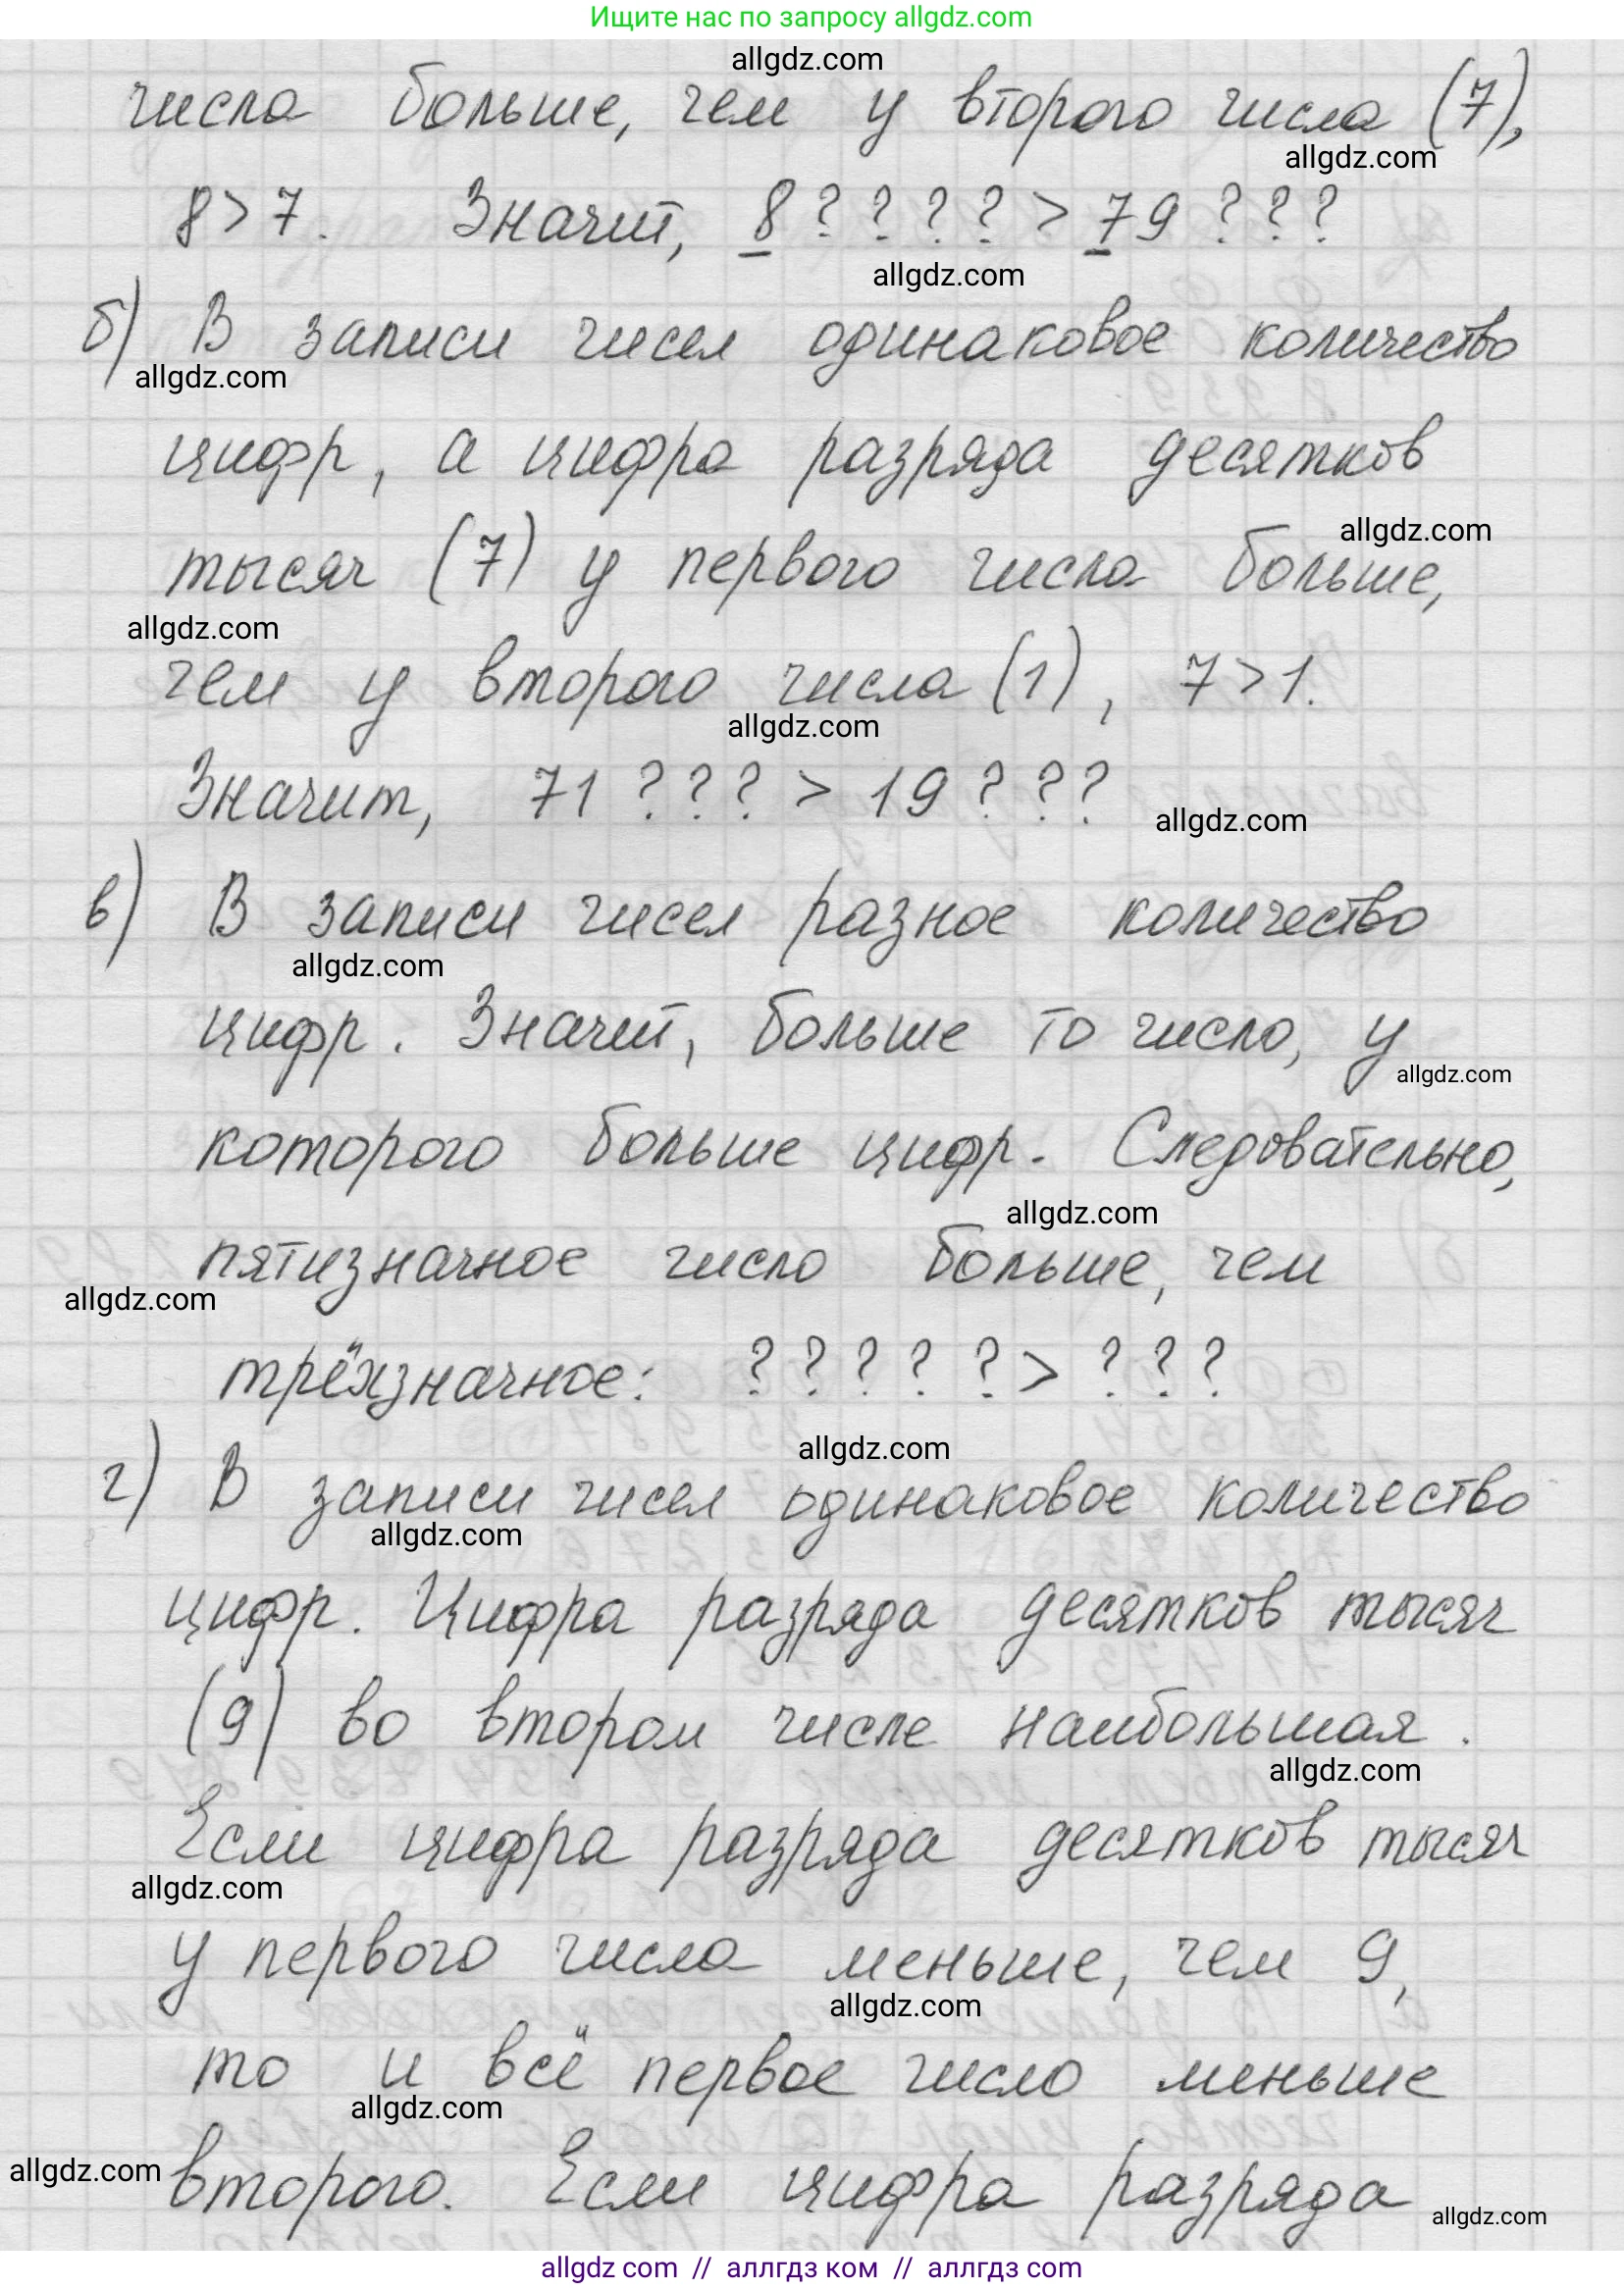 Ищите нас по запросу allgdz.com
allgdz.com
числа больше, чем у второго числа (7),
allgdz.com
8 > 7. Значит, 8 ? ? ? ? > 7 9 ? ? ?
allgdz.com
б) В записи чисел одинаковое количество
allgdz.com
цифр, а цифра разряда десятков
allgdz.com
тысяч (7) у первого числа больше,
allgdz.com
чем у второго числа (1), 7 > 1.
allgdz.com
Значит, 71 ? ? ? > 19 ? ? ?
allgdz.com
в) В записи чисел разное количество
allgdz.com
цифр. Значит, больше то число, у
allgdz.com
которого больше цифр. Следовательно,
allgdz.com
пятизначное число больше, чем
allgdz.com
трёхзначное: ? ? ? ? ? > ? ? ?
allgdz.com
г) В записи чисел одинаковое количество
allgdz.com
цифр. Цифра разряда десятков тысяч
(9) во втором числе наибольшая.
allgdz.com
Если цифра разряда десятков тысяч
allgdz.com
у первого числа меньше, чем 9,
allgdz.com
то и всё первое число меньше
allgdz.com
allgdz.com
второго. Если цифра разряда
allgdz.com
allgdz.com // аллгдз ком // allgdz.com